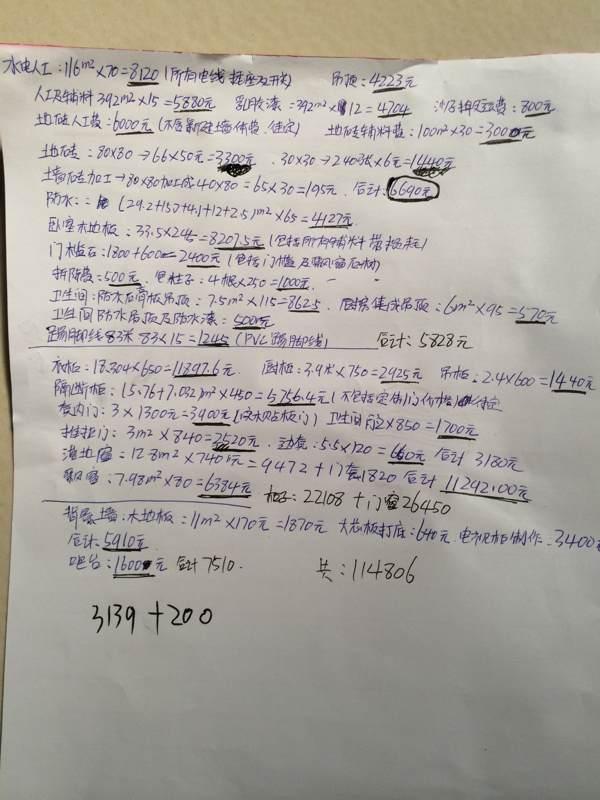 水电人工:116m²×70=8120(所有电线 插座及开关) 吊顶:4223元
人工及辅料392m²×15=5880元 乳胶漆:392m²×12=4704 沙及拌运费:800元
地砖人工费:6000元(不含新建墙体费、待定) 地砖辅料费:100m²×30=3000元
地砖:80×80→66×50元=3300元 30×30→240块×6元=1440元
墙砖加工→80×80加工成40×80=65×30=195元 合计:6690元
防水:(29.2+15)+4.1+12+2.5)m²×65=4127元
卧室木地板:33.5×245=8207.5元(包括所有辅料 带损耗)
门槛石:1800+600=2400元(包括门槛及飘窗石材)
拆除费:500元 包柱子:4根×250=1000元
卫生间:防水石膏板吊顶:7.5m²×115=862.5 厨房集成吊顶:6m²×95=570元
卫生间防水吊顶及防水漆:500元
踢脚线83米 83×15=1245(PVC踢脚线) 合计:5828元
衣柜:18.304×650=11897.6元 厨柜:3.9米×750=2925元 吊柜:2.4×600=1440元
隔断柜:(5.76+7.032)m²×450=5756.4元(不包括
室内门:3×1300元=3900元 卫生间门2×850=1700元
推拉门:3m²×840=2520元 边套:5.5×120=660元 合计3180元
落地窗:12.8m²×740元=9472+门套1820 合计11292.00元
飘窗:7.98m²×80=6384元 柜子:22108+门窗26450
背景墙:木地板:11m²×170元=1870元 大芯板打底:640元 电视柜制作:3400
合计:5910元
吧台:1600元 合计7510. 共:114806
3139+200